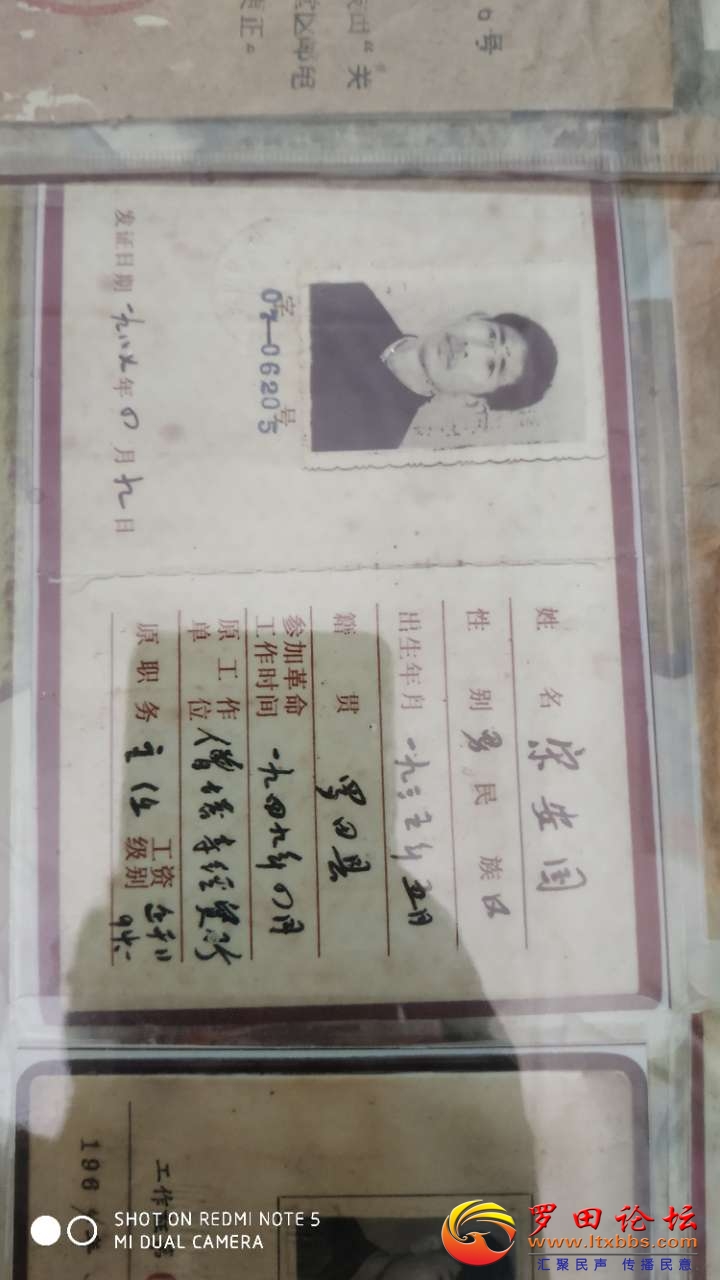 号
关
区邮电
正"
字
02-06205
号
发证日期 一九八九年四月九日
姓名 宋安国
性别 男 民族 汉
出生年月 一九三五年五月
籍贯 罗田县
参加革命工作时间 一九四九年四月
原工作单位
原职务 主任 工资级别
工作
196
SHOT ON REDMI NOTE 5
MI DUAL CAMERA
罗田论坛
www.ltxbbs.com
汇聚民声 传播民意